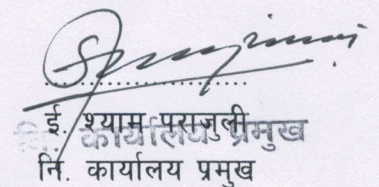 ....................
ई. श्याम पराजुली
नि. कार्यालय प्रमुख
नि. कार्यालय प्रमुख